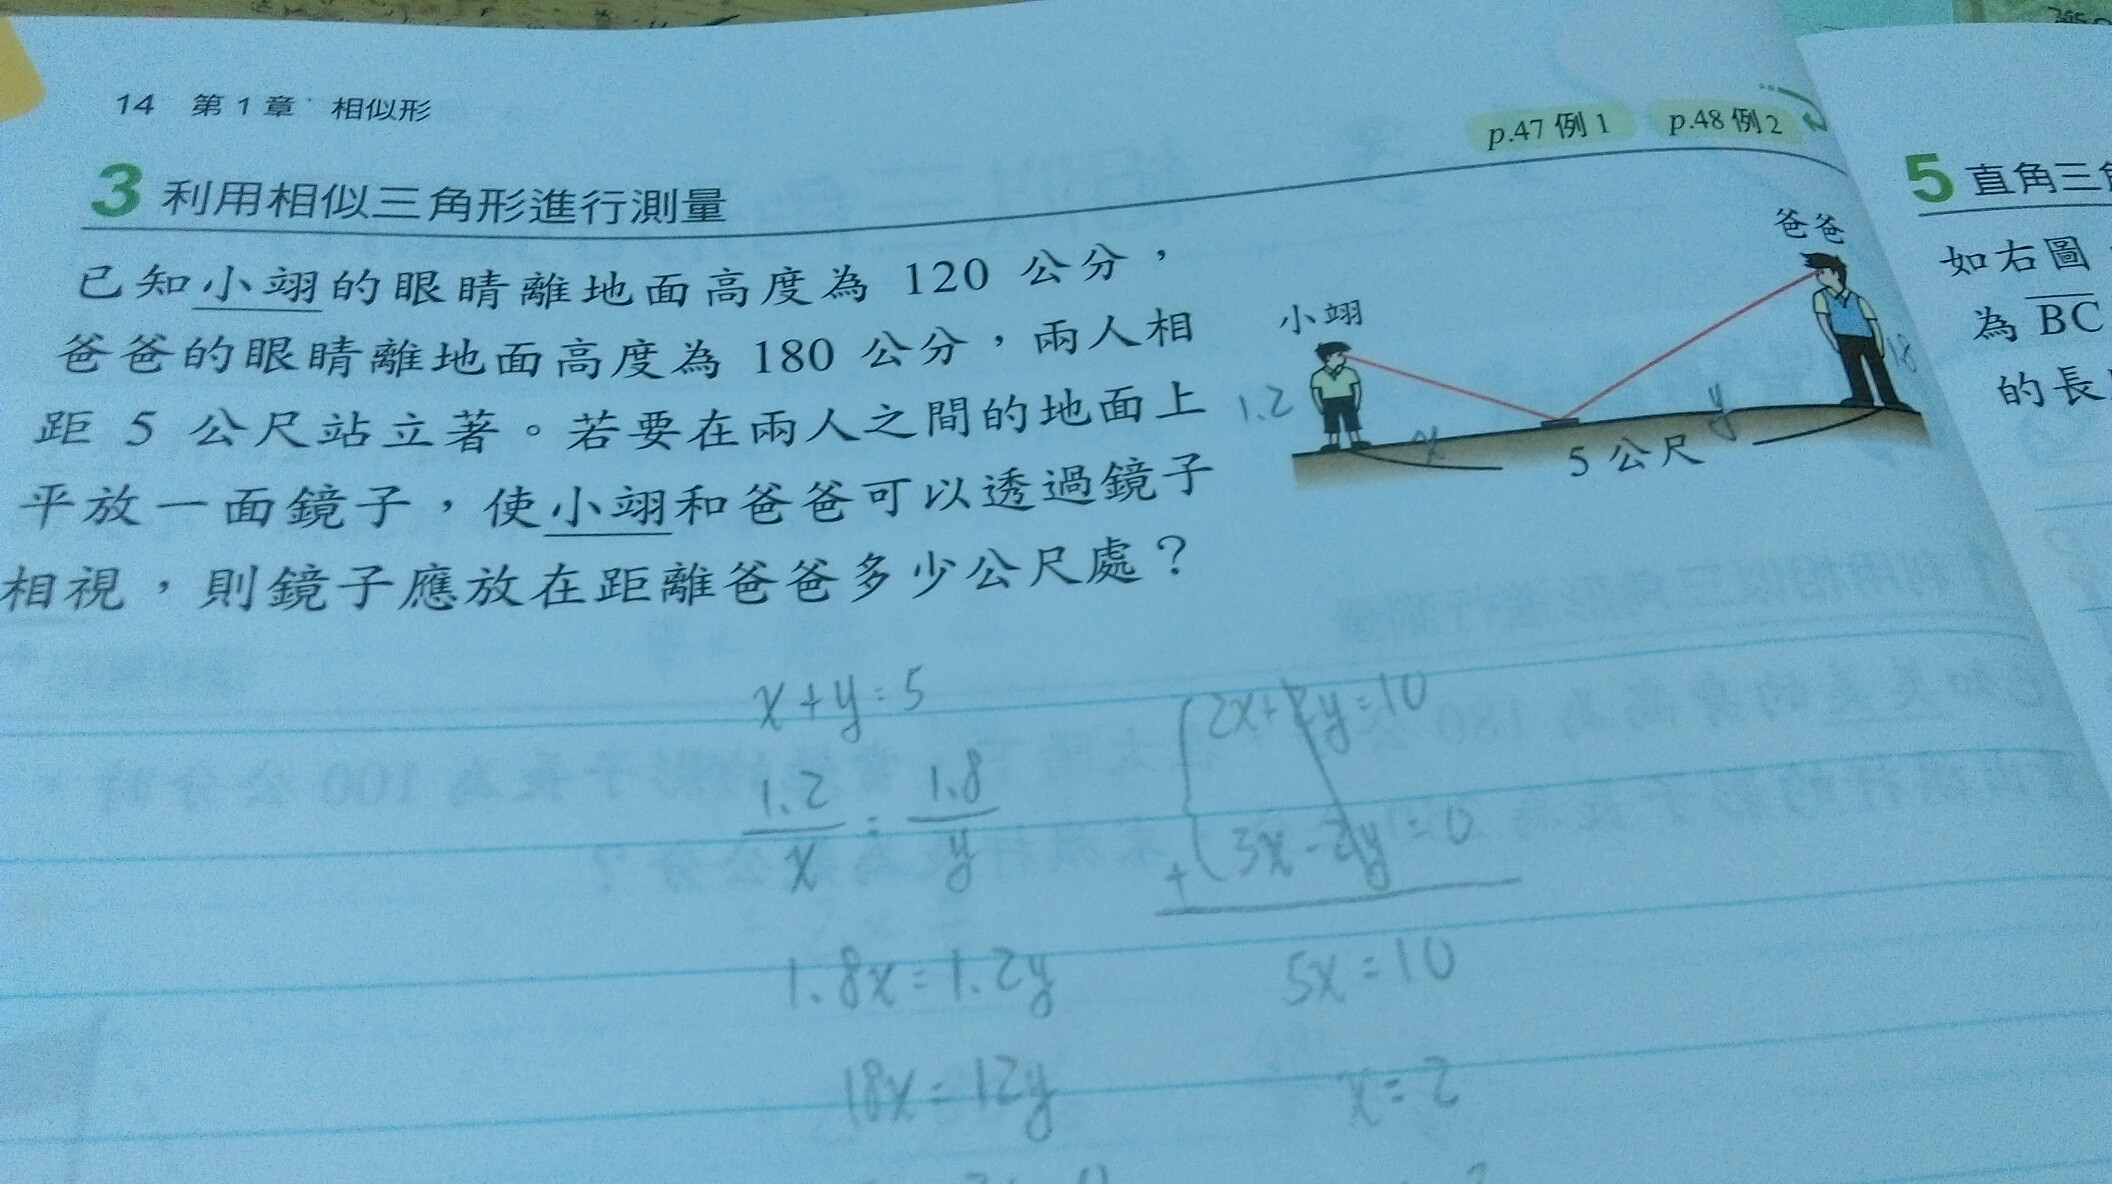 14 第1章 相似形
p.47 例1 p.48 例2
3 利用相似三角形進行測量
已知小翊的眼睛離地面高度為 120 公分，
爸爸的眼睛離地面高度為 180 公分，兩人相
距 5 公尺站立著。若要在兩人之間的地面上
平放一面鏡子，使小翊和爸爸可以透過鏡子
相視，則鏡子應放在距離爸爸多少公尺處？
爸爸
小翊
1.2
x
y
5 公尺
x+y=5
1.2/x = 1.8/y
1.8x=1.2y
18x=12y
2x+2y=10
+ 3x-2y=0
5x=10
x=2
5 直角三
如右圖
為 BC
的長